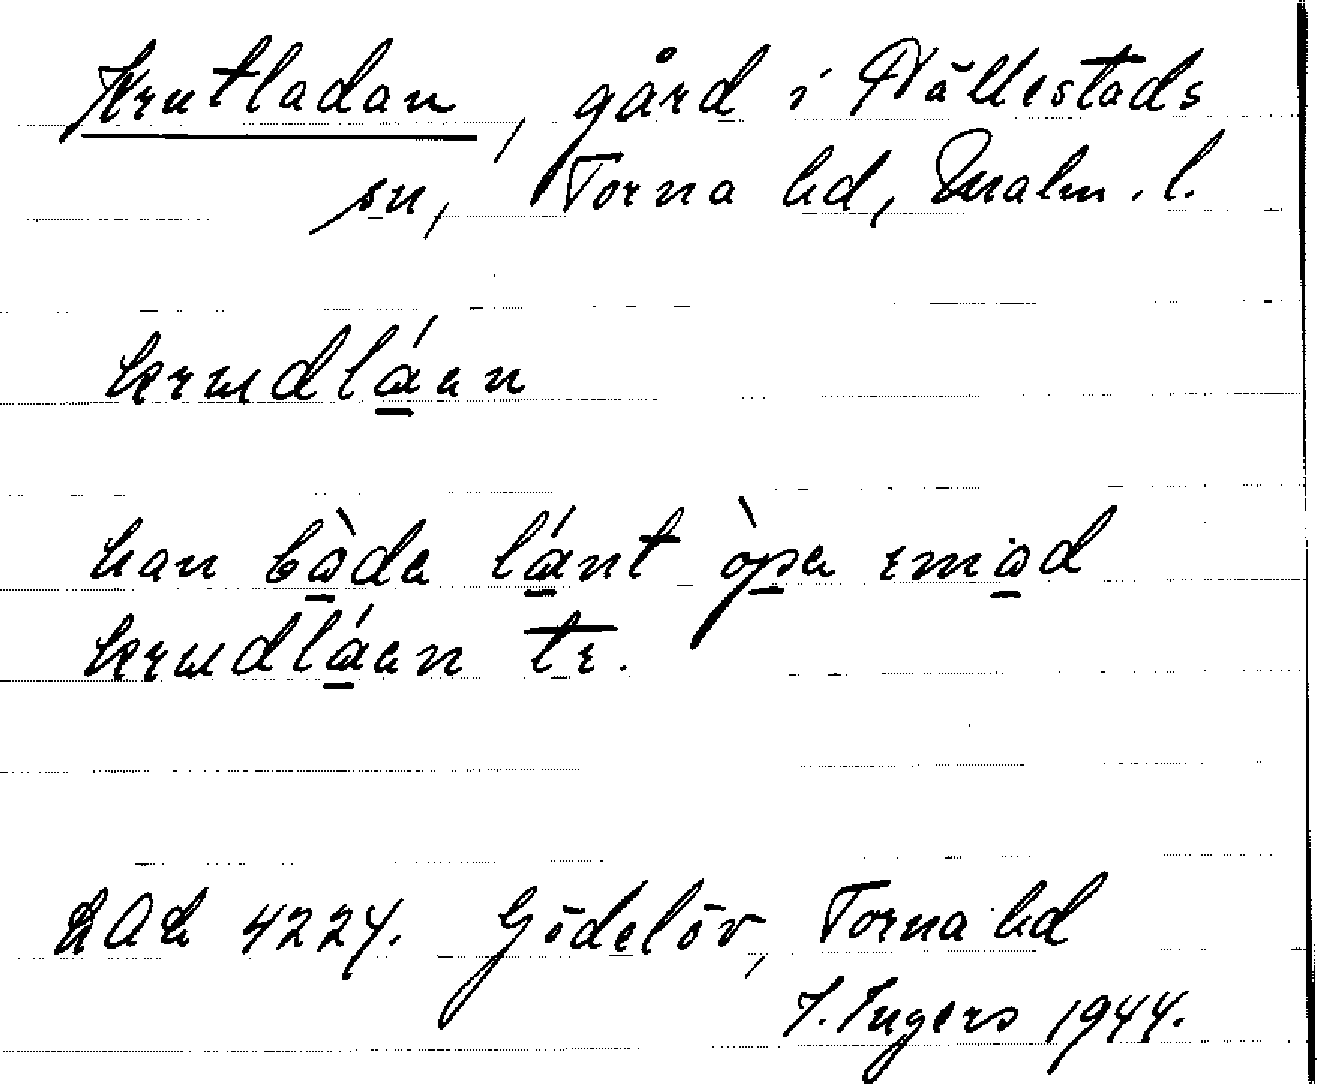 Krutladan, gård i Hällestads
sn, Torna hd, Malm. l.
krudláan
han bàde lánt òpa emod
krudláen te.
LAL 4224. Gödelöv, Torna hd
I. Ingers 1944.